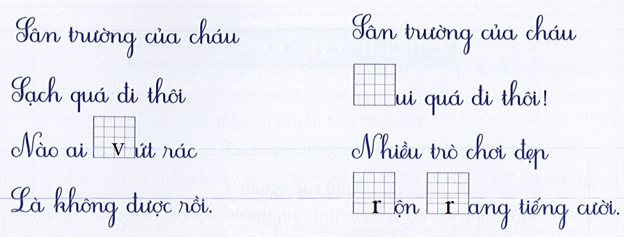 Sân trường của cháu
Sạch quá đi thôi
Nào ai vứt rác
Là không được rồi.
Sân trường của cháu
ui quá đi thôi!
Nhiều trò chơi đẹp
rộn rang tiếng cười.